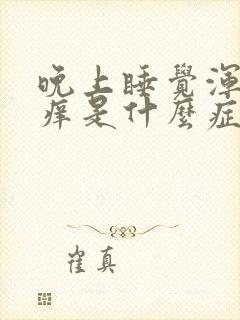 晚上睡覺渾
痒是什麼症
崔真